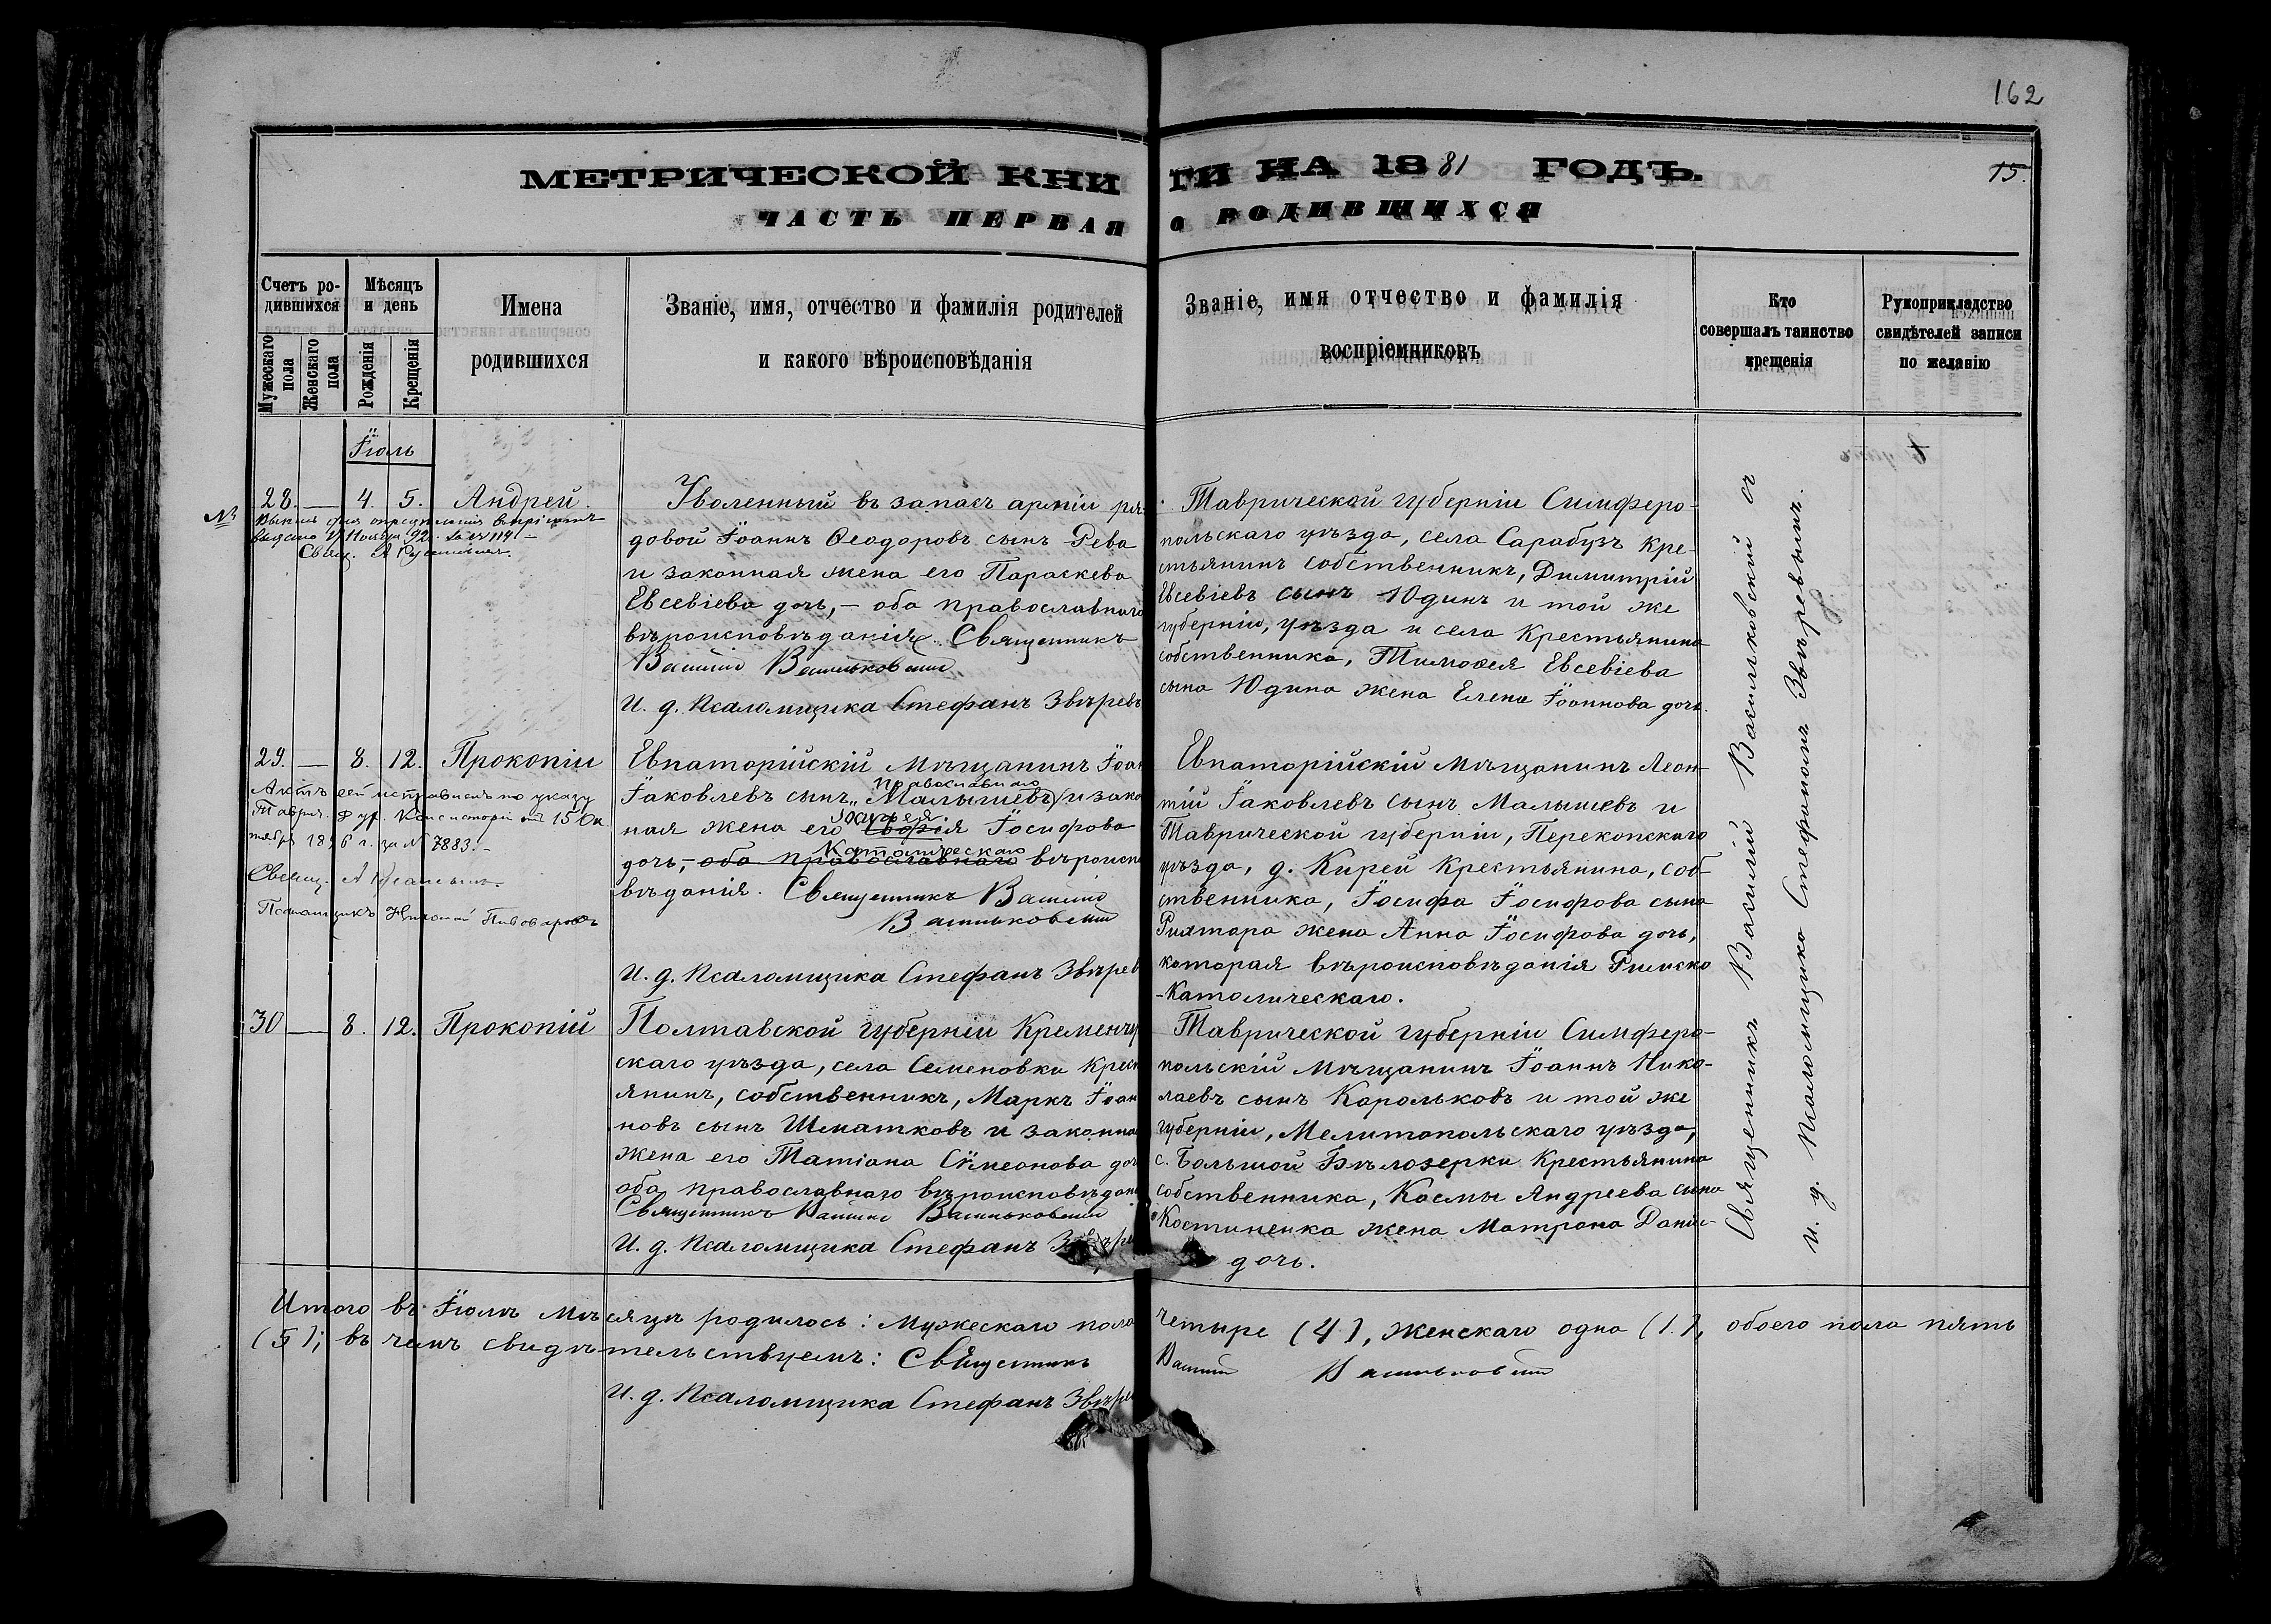 162
МЕТРИЧЕСКОЙ КНИГИ НА 1881 ГОДЪ.
15.
ЧАСТЬ ПЕРВАЯ О РОДИВШИХСЯ
Счетъ родившихся
Мужескаго пола
Женскаго пола
Мѣсяцъ и день
Рожденія
Крещенія
Имена
родившихся
Званіе, имя, отчество и фамилія родителей
и какого вѣроисповѣданія
Званіе, имя отчество и фамилія
воспріемниковъ
Кто
совершалъ таинство
крещенія
Рукоприкладство
свидѣтелей записи
по желанію
Іюль
28. — 4. 5. Андрей.
№
Свящ.
Уволенный въ запасъ арміи ря-
довой Іоаннъ Ѳеодоровъ сынъ Рева
и законная жена его Параскева
Евсевіева дочь, – оба православнаго
вѣроисповѣданія. Священникъ
Василій Васильковскій
И. д. Псаломщика Стефанъ Звѣревъ
Таврической губерніи Симферо-
польскаго уѣзда, села Сарабузъ кре-
стьянинъ собственникъ, Димитрій
Евсевіевъ сынъ Юдинъ и той же
губерніи, уѣзда и села крестьянина
собственника, Тимоѳея Евсевіева
сына Юдина жена Елена Іоаннова дочь.
29. — 8. 12. Прокопій
Актъ сей исправленъ по указу
Таврич. Дух. Консисторіи отъ 15 Ок
тября 1896 г. за № 7883. –
Свящ.
Псаломщикъ Николай Пивоваровъ
Евпаторійскій мѣщанинъ Іоан
православнаго
Іаковлевъ сынъ „Малышевъ/и зако
ная жена его Софія Іосифова
Католическаго
дочь, – оба православнаго вѣроиспо
вѣданія. Священникъ Василій
Васильковскій
И. д. Псаломщика Стефанъ Звѣрев
Евпаторійскій мѣщанинъ Леон-
тій Іаковлевъ сынъ Малышевъ и
Таврической губерніи, Перекопскаго
уѣзда, д. Кирей крестьянина, соб-
ственника, Іосифа Іосифова сына
Рихтара жена Анна Іосифова дочь,
которая вѣроисповѣданія Римско
-Католическаго.
30 — 8. 12. Прокопій
Полтавской губерніи Кременчу
скаго уѣзда, села Семеновки крест
янинъ, собственникъ, Маркъ Іоан
новъ сынъ Шматковъ и законна
жена его Татіана Сѵмеонова доч
оба православнаго вѣроисповѣдан
Священникъ Василій Васильковскій
И. д. Псаломщика Стефанъ Звѣре
Таврической губерніи Симферо-
польскій мѣщанинъ Іоаннъ Нико-
лаевъ сынъ Карольковъ и той же
губерніи, Мелитопольскаго уѣзда,
с. Большой Бѣлозерки крестьянина
собственника, Космы Андреева сына
Костиненка жена Матрона Даніи-
дочь.
Священникъ Василій Васильковскій съ
и. д. Псаломщика Стефаномъ Звѣревымъ.
Итого въ Іюлѣ мѣсяцѣ родилось: мужескаго пола четыре (4), женскаго одна (1.), обоего пола пять
(5); въ чемъ свидѣтельствуемъ: Священникъ Василій Васильковскій
И. д. Псаломщика Стефанъ Звѣре